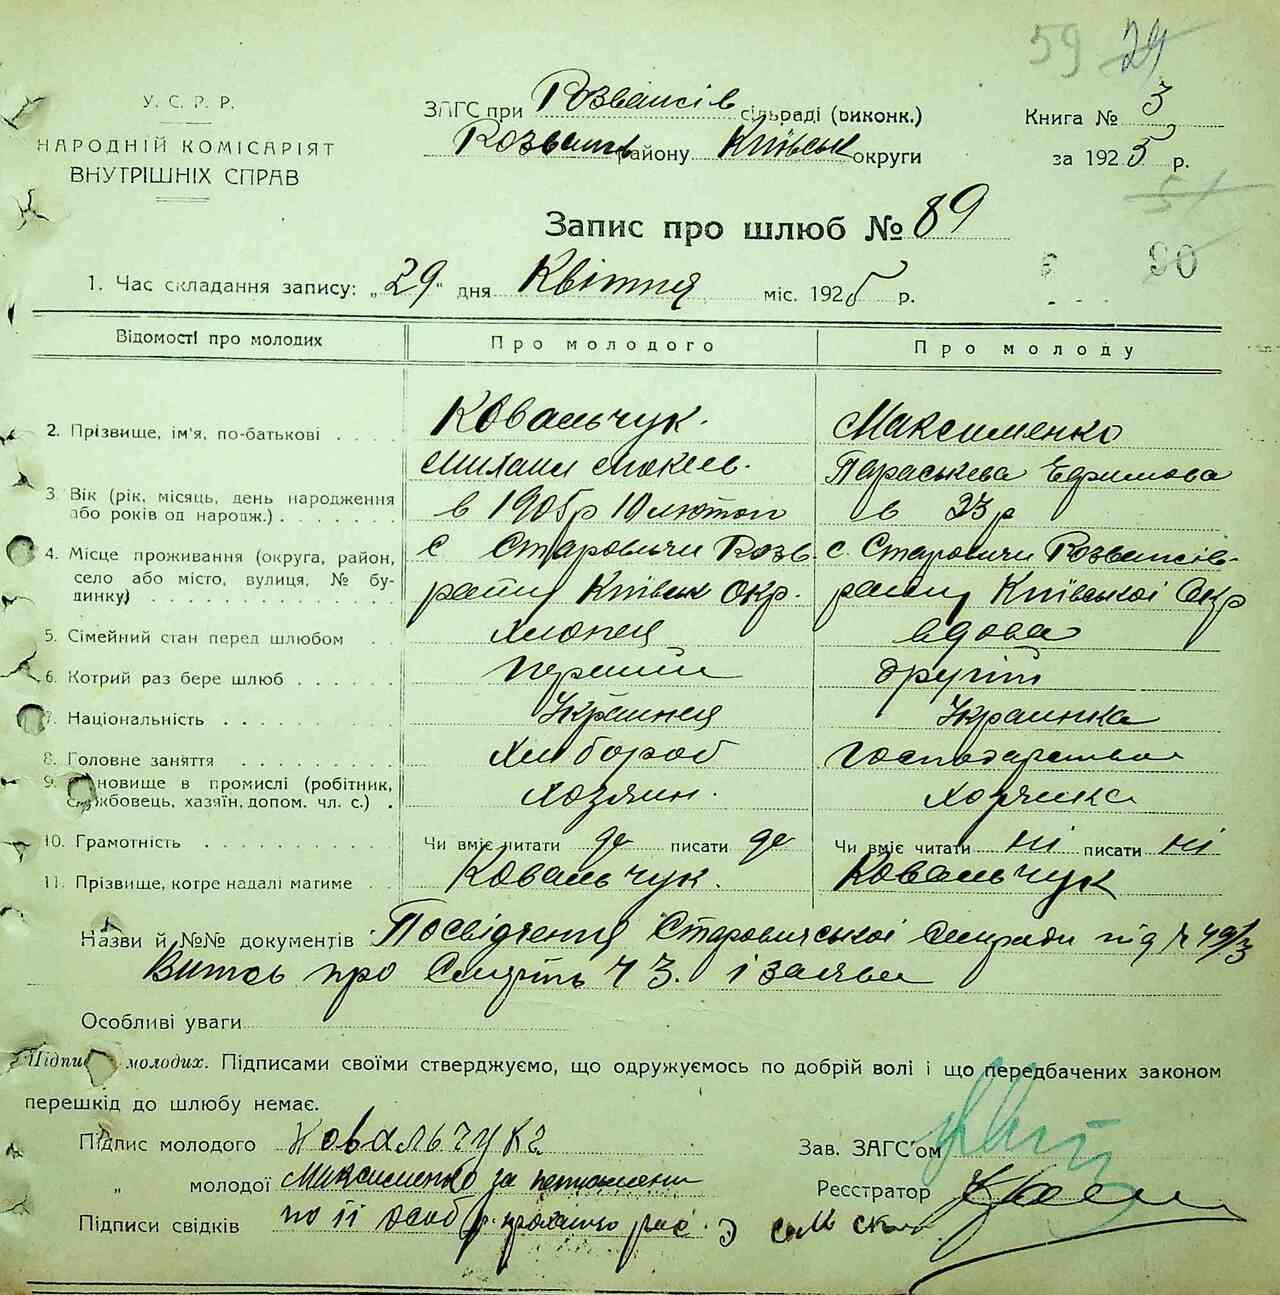 59 29
У. С. Р. Р.
НАРОДНІЙ КОМІСАРІЯТ
ВНУТРІШНІХ СПРАВ
ЗАГС при Розважів сільраді (виконк.)
Розваж району Київськ округи
Книга № 3
за 1925 р.
51
Запис про шлюб № 89
90
1. Час складання запису: „29" дня Квітня міс. 1925 р.
Відомості про молодих
Про молодого
Про молоду
2. Прізвище, ім'я, по-батькові
Ковальчук.
Михаил Мокеев.
Максименко
Параськева Ефримова
3. Вік (рік, місяць, день народження
або років од народж.)
в 1905 р 10 лютого
в 23 р
4. Місце проживання (округа, район,
село або місто, вулиця, № бу-
динку)
с Старовичи Розв.
району Київськ Окр.
с. Старовичи Розважів-
району Київської Окр
5. Сімейний стан перед шлюбом
хлопец
вдова
6. Котрий раз бере шлюб
первий
другій
7. Національність
Украинец
Украинка
8. Головне заняття
хлибороб
господарство
9. ановище в промислі (робітник,
службовець, хазяїн, допом. чл. с.)
хозяин.
хозяика
10. Грамотність
Чи вміє читати да писати да
Чи вміє читати ні писати ні
11. Прізвище, котре надалі матиме
Ковальчук.
Ковальчук
Назви й №№ документів Посвідчення Старовичської Сельради під № 49/3
Витяг про Смерть Ч 3. і заяви
Особливі уваги
Підпи молодих. Підписами своїми стверджуємо, що одружуємось по добрій волі і що передбачених законом
перешкід до шлюбу немає.
Підпис молодого Ковальчук
„ молодої Максименко за неписмени
Підписи свідків по її особ. прохання рас.
Зав. ЗАГС'ом
Реєстратор